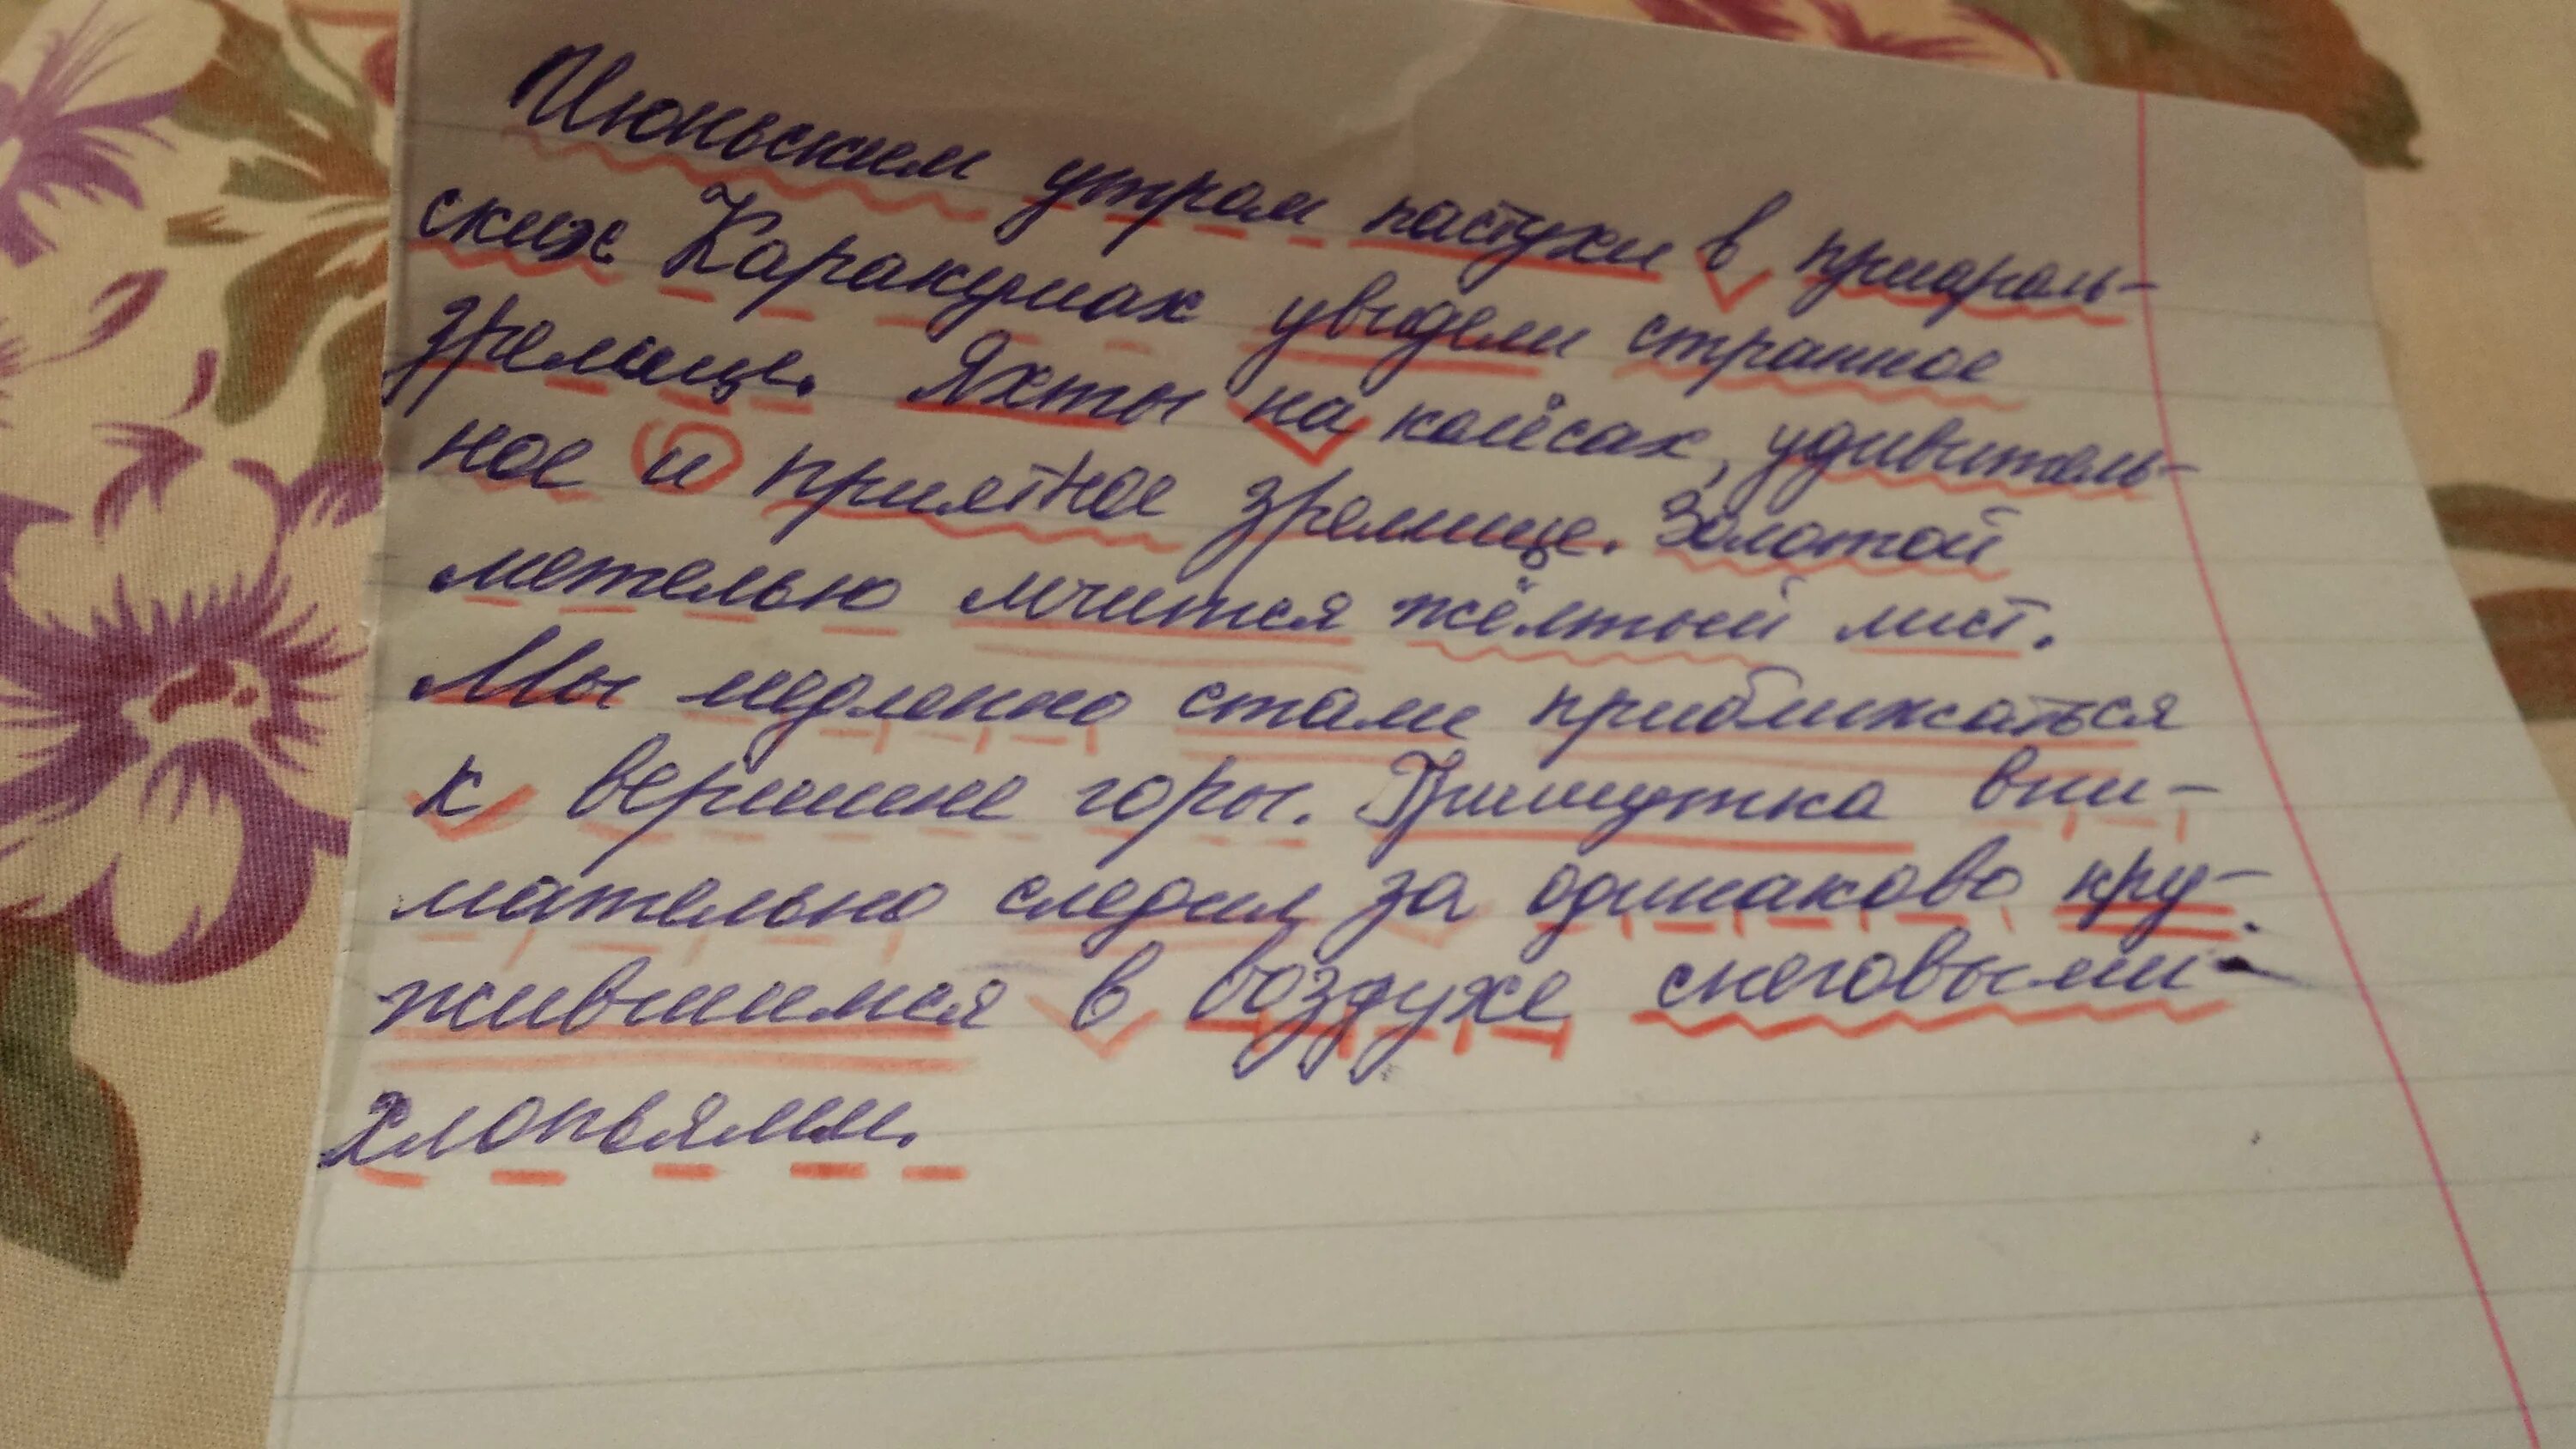 Июньским утром пастухи в приараль-
ских Каракумах увидели странное
зрелище. Яхты на колёсах, удивитель-
ное и приятное зрелище. Золотой
метелью мчится жёлтый лист.
Мы медленно стали приближаться
к вершине горы. Гришутка вни-
мательно следил за одинаково кру-
жившимися в воздухе снеговыми
хлопьями.